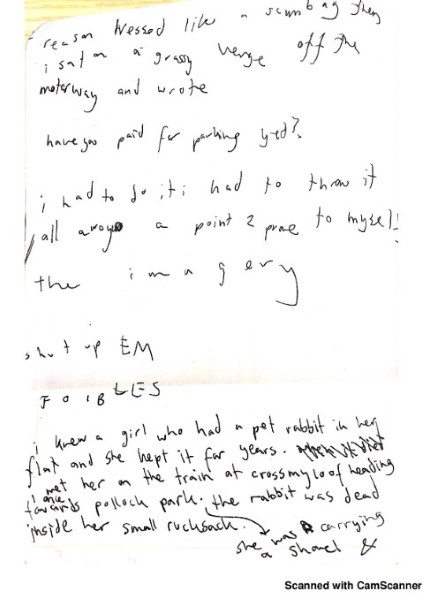 reason dressed like a scumbag then
i sat on a grassy verge off the
moterway and wrote
have you paid for parking yet?
i had to do it i had to throw it
all away a point 2 prove to myself!
the imagery
shut up EM
FOIBLES
i knew a girl who had a pet rabbit in her
flat and she kept it for years.
I once met her on the train at crossmyloof heading
towards pollock park. the rabbit was dead
inside her small rucksack.
she was carrying
a shovel &
Scanned with CamScanner